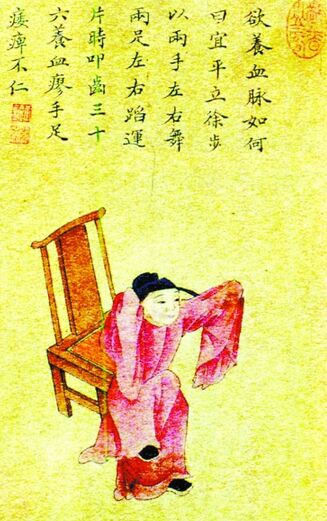 欲養血脉如何
曰宜平立徐步
以兩手左右舞
兩足左右蹈運
片時叩齒三十
六養血瘳手足
痿痺不仁